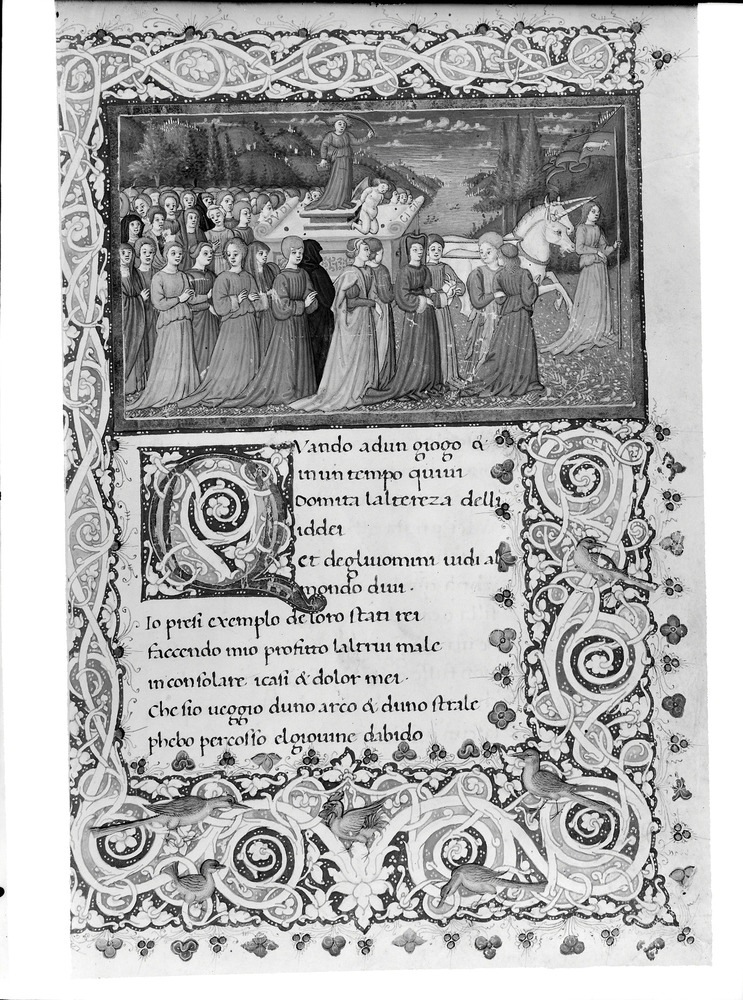 QVando adun giogo &
in un tempo quiui
Domita laltereza delli
iddei
Et degluomini uidi al
mondo diui.
Io presi exemplo de loro stati rei
faccendo mio profitto laltrui male
in consolare icasi & dolor mei.
Che sio ueggio duno arco & duno strale
phebo percosso elgiouine dabido